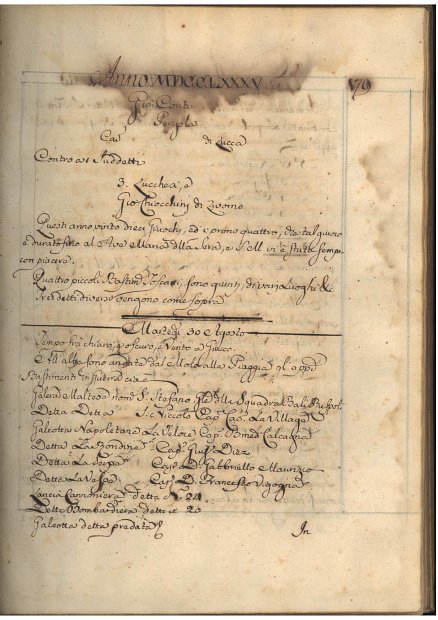 Anno MDCCLXXXV 179
Gio: Conti
Pergola
Cav di Lucca
Contro ai Suddetti
3. Lucchesi, e
Gio: Chiocchini di Livorno
Questi anno vinto dieci Giuochi, ed i primi quattro,
e durato fino al Ave Maria della Sera, e S. M. vi è stata sempre
con piacere.
Quattro piccoli Bastimti Toscani, sono giunti, di vari Luoghi &
Tre detti diversi vengono come sopra
Martedì 30 Agosto
Tempo frà chiaro, e oscuro, e Vento a Greco.
E All'alba sono andati dal Molo alla Piaggia gli appi
Bastimenti di Guerra cioè
Galera Maltese nomta S. Stefano, della Squadra Bali
Detta Detta S. Niccola Cap. Cav. La Village
Galeotta Napoletana La Velore Cap. Calcagna
Detta La Bondine Cap. Diez
Detta La Serpa Cap. D. Gabbriello Maurizio
Detta La Vespa Cap. D. Francesco Vizogna
Lancia Cannoniera detta N. 24
Detta Bombardiera detta N. 20
Galeotta detta predata
In